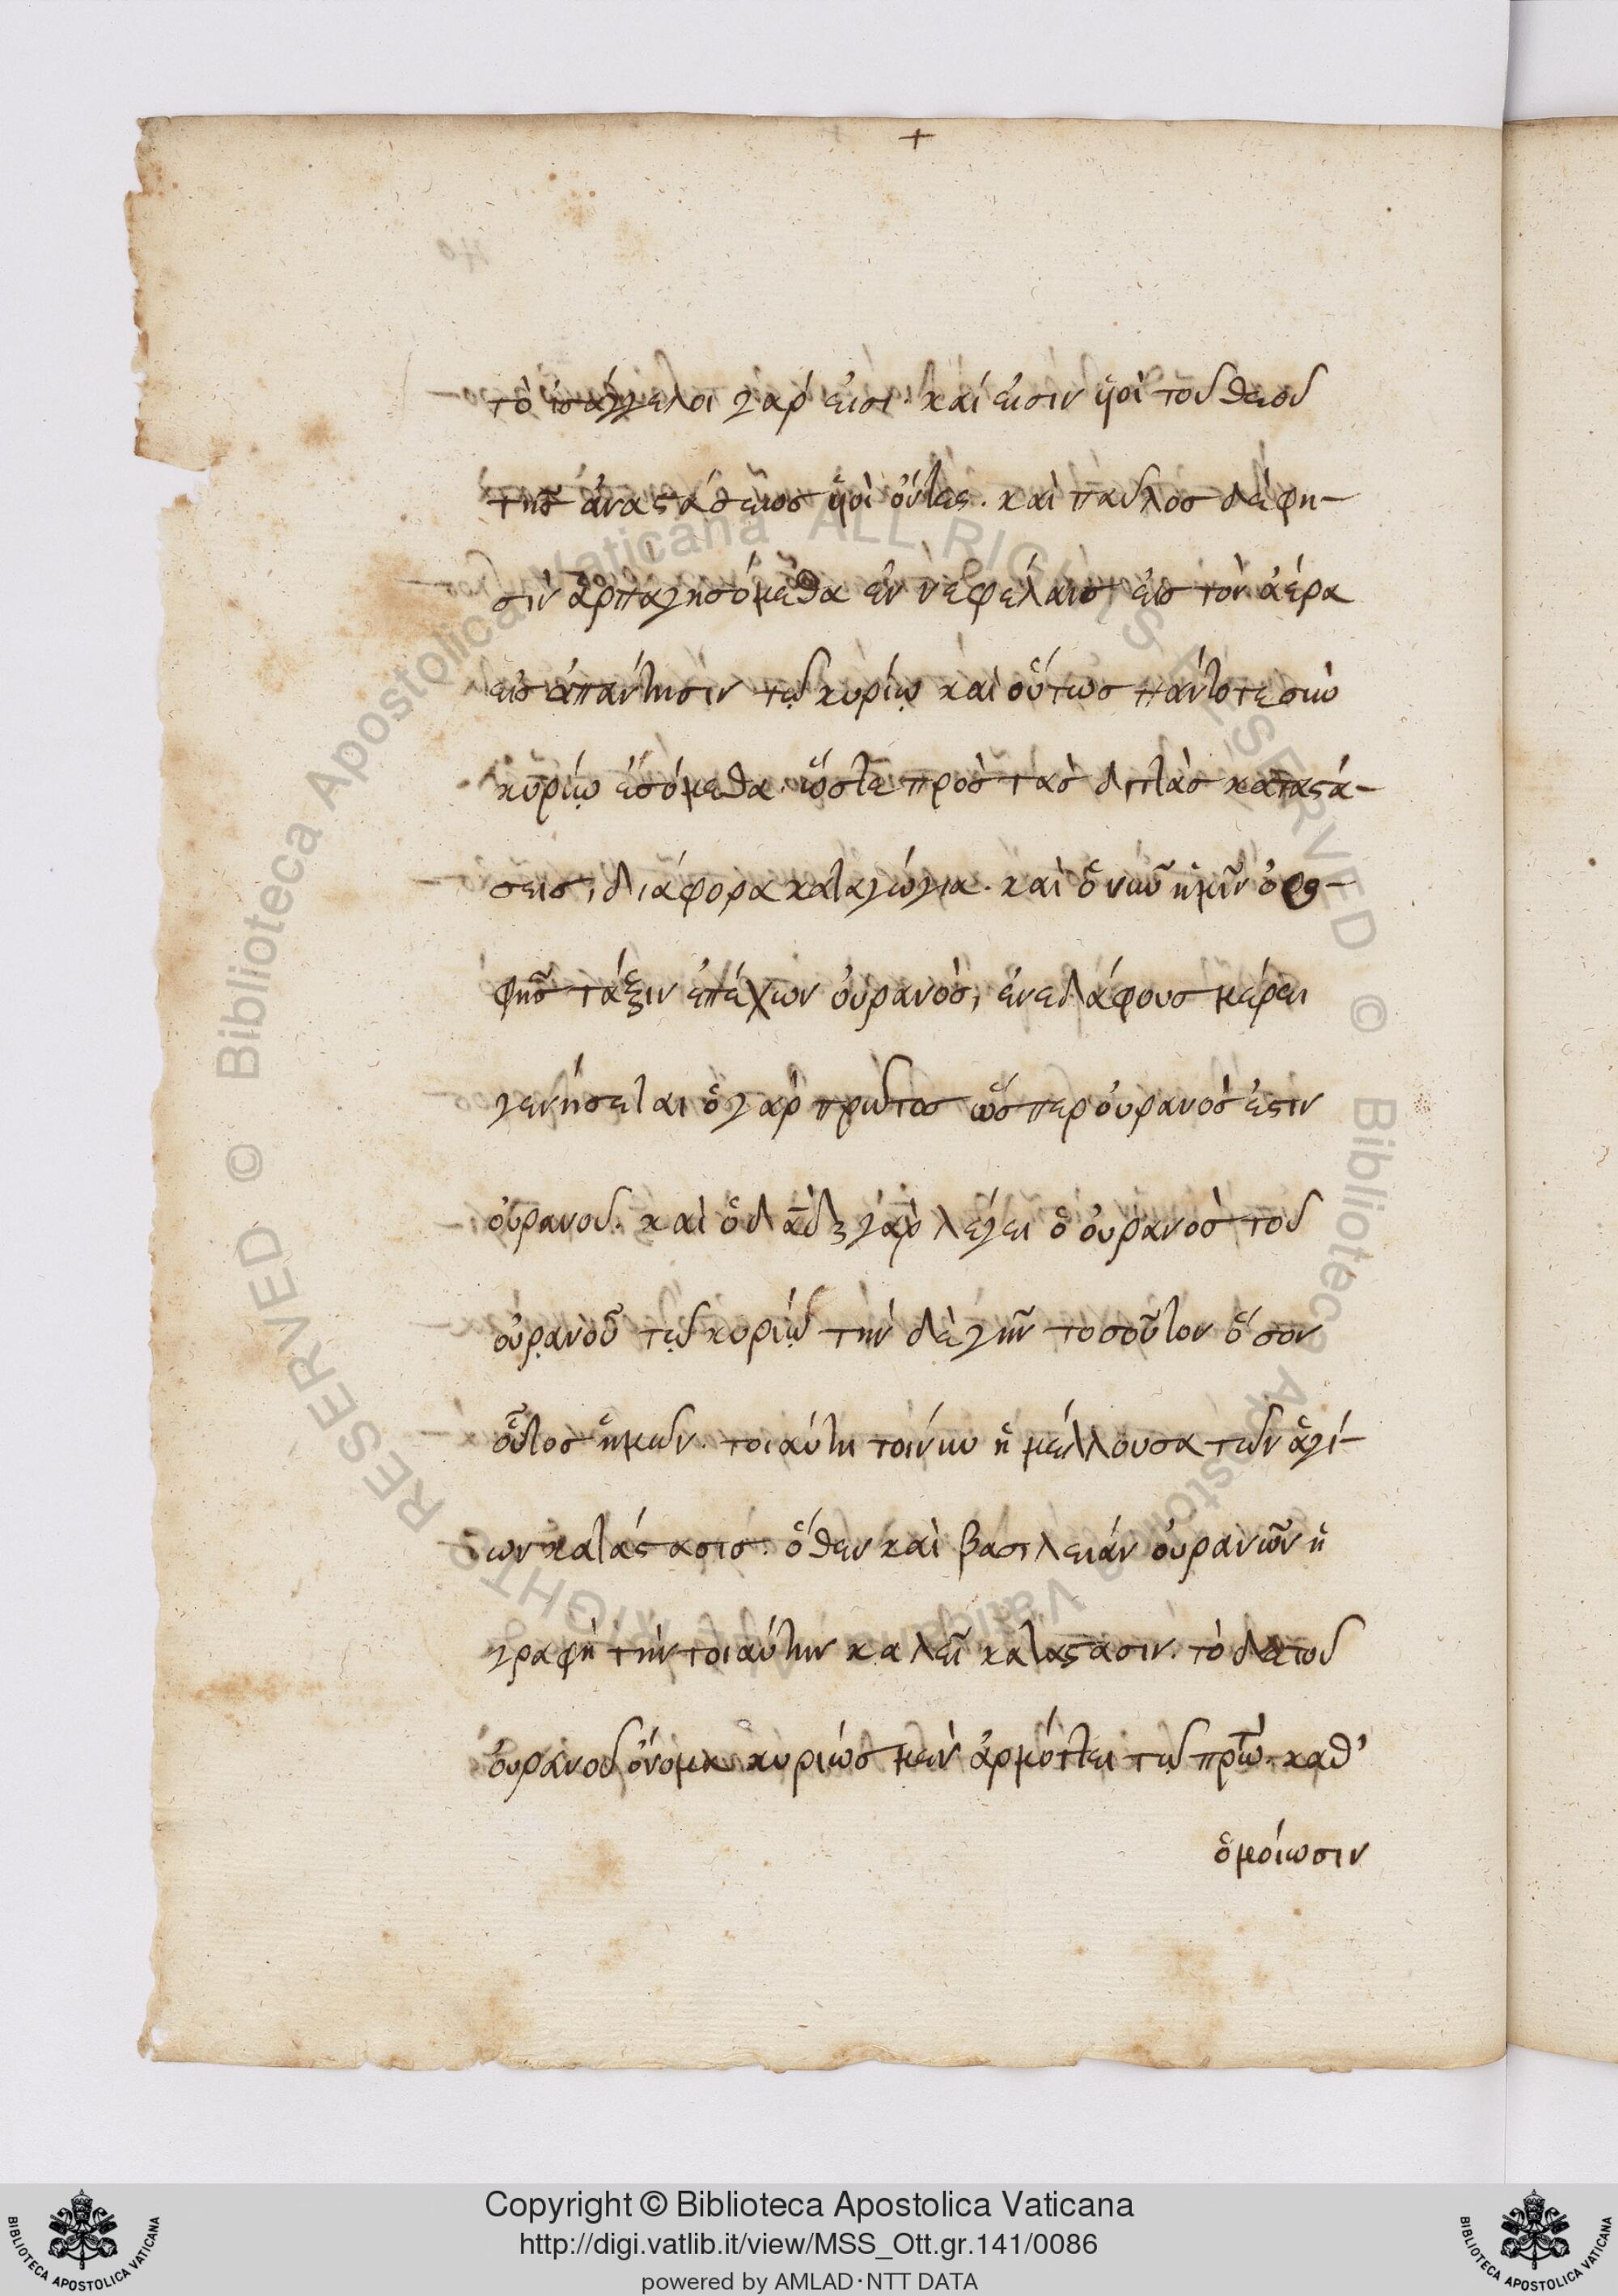 +
τὸ ἰσάγγελοι γάρ εἰσι· καί εἰσιν ὑιοὶ τοῦ θεοῦ
τῆς ἀναστάσεως ὑιοὶ ὄντες. καὶ παῦλος δέ φη-
σιν ἁρπαγησόμεθα ἐν νεφέλαις εἰς τὸν ἀέρα
εἰς ἀπάντησιν τῷ κυρίῳ καὶ οὕτως πάντοτε σὺν
κυρίῳ ἐσόμεθα· ὥστε πρὸς τὰς διττὰς καταστά-
σεις, διάφορα καταγώγια. καὶ ὁ νῦν ἡμῖν ὀρο-
φῆς τάξιν ἐπέχων οὐρανὸς, ἐν ἐδάφους μέρει
γενήσεται ὁ γὰρ πρῶτος ὥσπερ οὐρανὸς ἐστιν
οὐρανοῦ. καὶ ὁ δᾱδ γὰρ λέγει ὁ οὐρανὸς τοῦ
οὐρανοῦ τῷ κυρίῳ τὴν δὲ γῆν τοσοῦτον ὅσον
οὗτος ἡμῶν. τοιαύτη τοίνυν ἡ μέλλουσα τῶν ἁγί-
ων κατάστασις. ὅθεν καὶ βασιλείαν οὐρανῶν ἡ
γραφὴ τὴν τοιαύτην καλεῖ κατάστασιν. τὸ δὲ τοῦ
οὐρανοῦ ὄνομα κυρίως μὲν ἁρμόττει τῷ πρώτῳ. καθ’
ὁμοίωσιν
© Biblioteca Apostolica Vaticana ALL RIGHTS RESERVED © Biblioteca Apostolica Vaticana ALL RIGHTS RESERVED
Copyright © Biblioteca Apostolica Vaticana
http://digi.vatlib.it/view/MSS_Ott.gr.141/0086
powered by AMLAD·NTT DATA
BIBLIOTECA APOSTOLICA VATICANA
BIBLIOTECA APOSTOLICA VATICANA